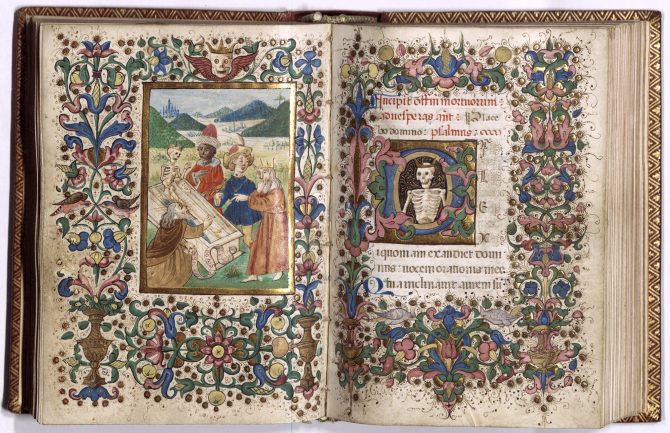 Incipit offm mortuorum
aduesperas añt. Place
bo domino: psalmus
D
I
L
E
X
i quoniam exaudiet domi
nus: uocem orationis mee
Quia inclinauit aurem su